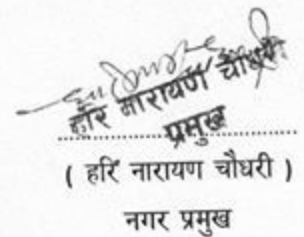 हरि नारायण चौधरी
प्रमुख
( हरि नारायण चौधरी )
नगर प्रमुख